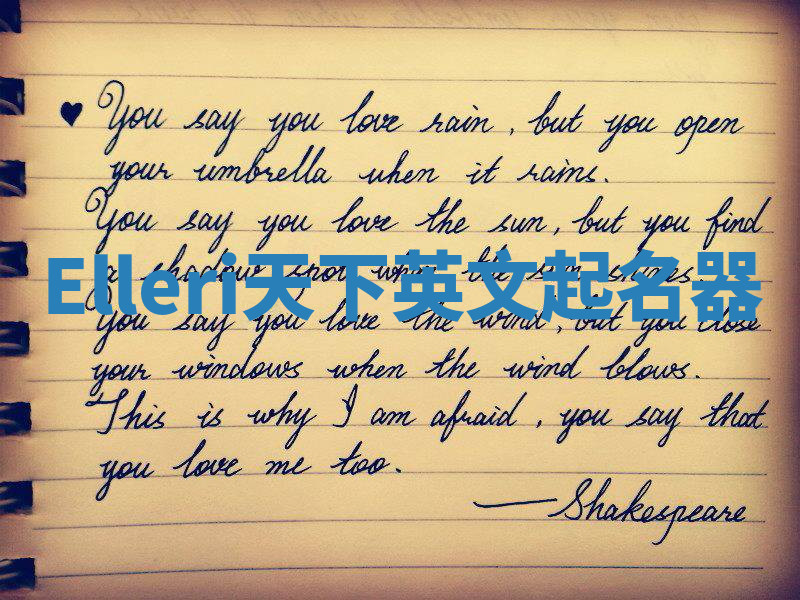 ♥ You say you love rain, but you open
your umbrella when it rains.
You say you love the sun, but you find
a shadow spot when the sun shines.
Elleri天下英文起名器
You say you love the wind, but you close
your windows when the wind blows.
This is why I am afraid, you say that
you love me too.
—Shakespeare